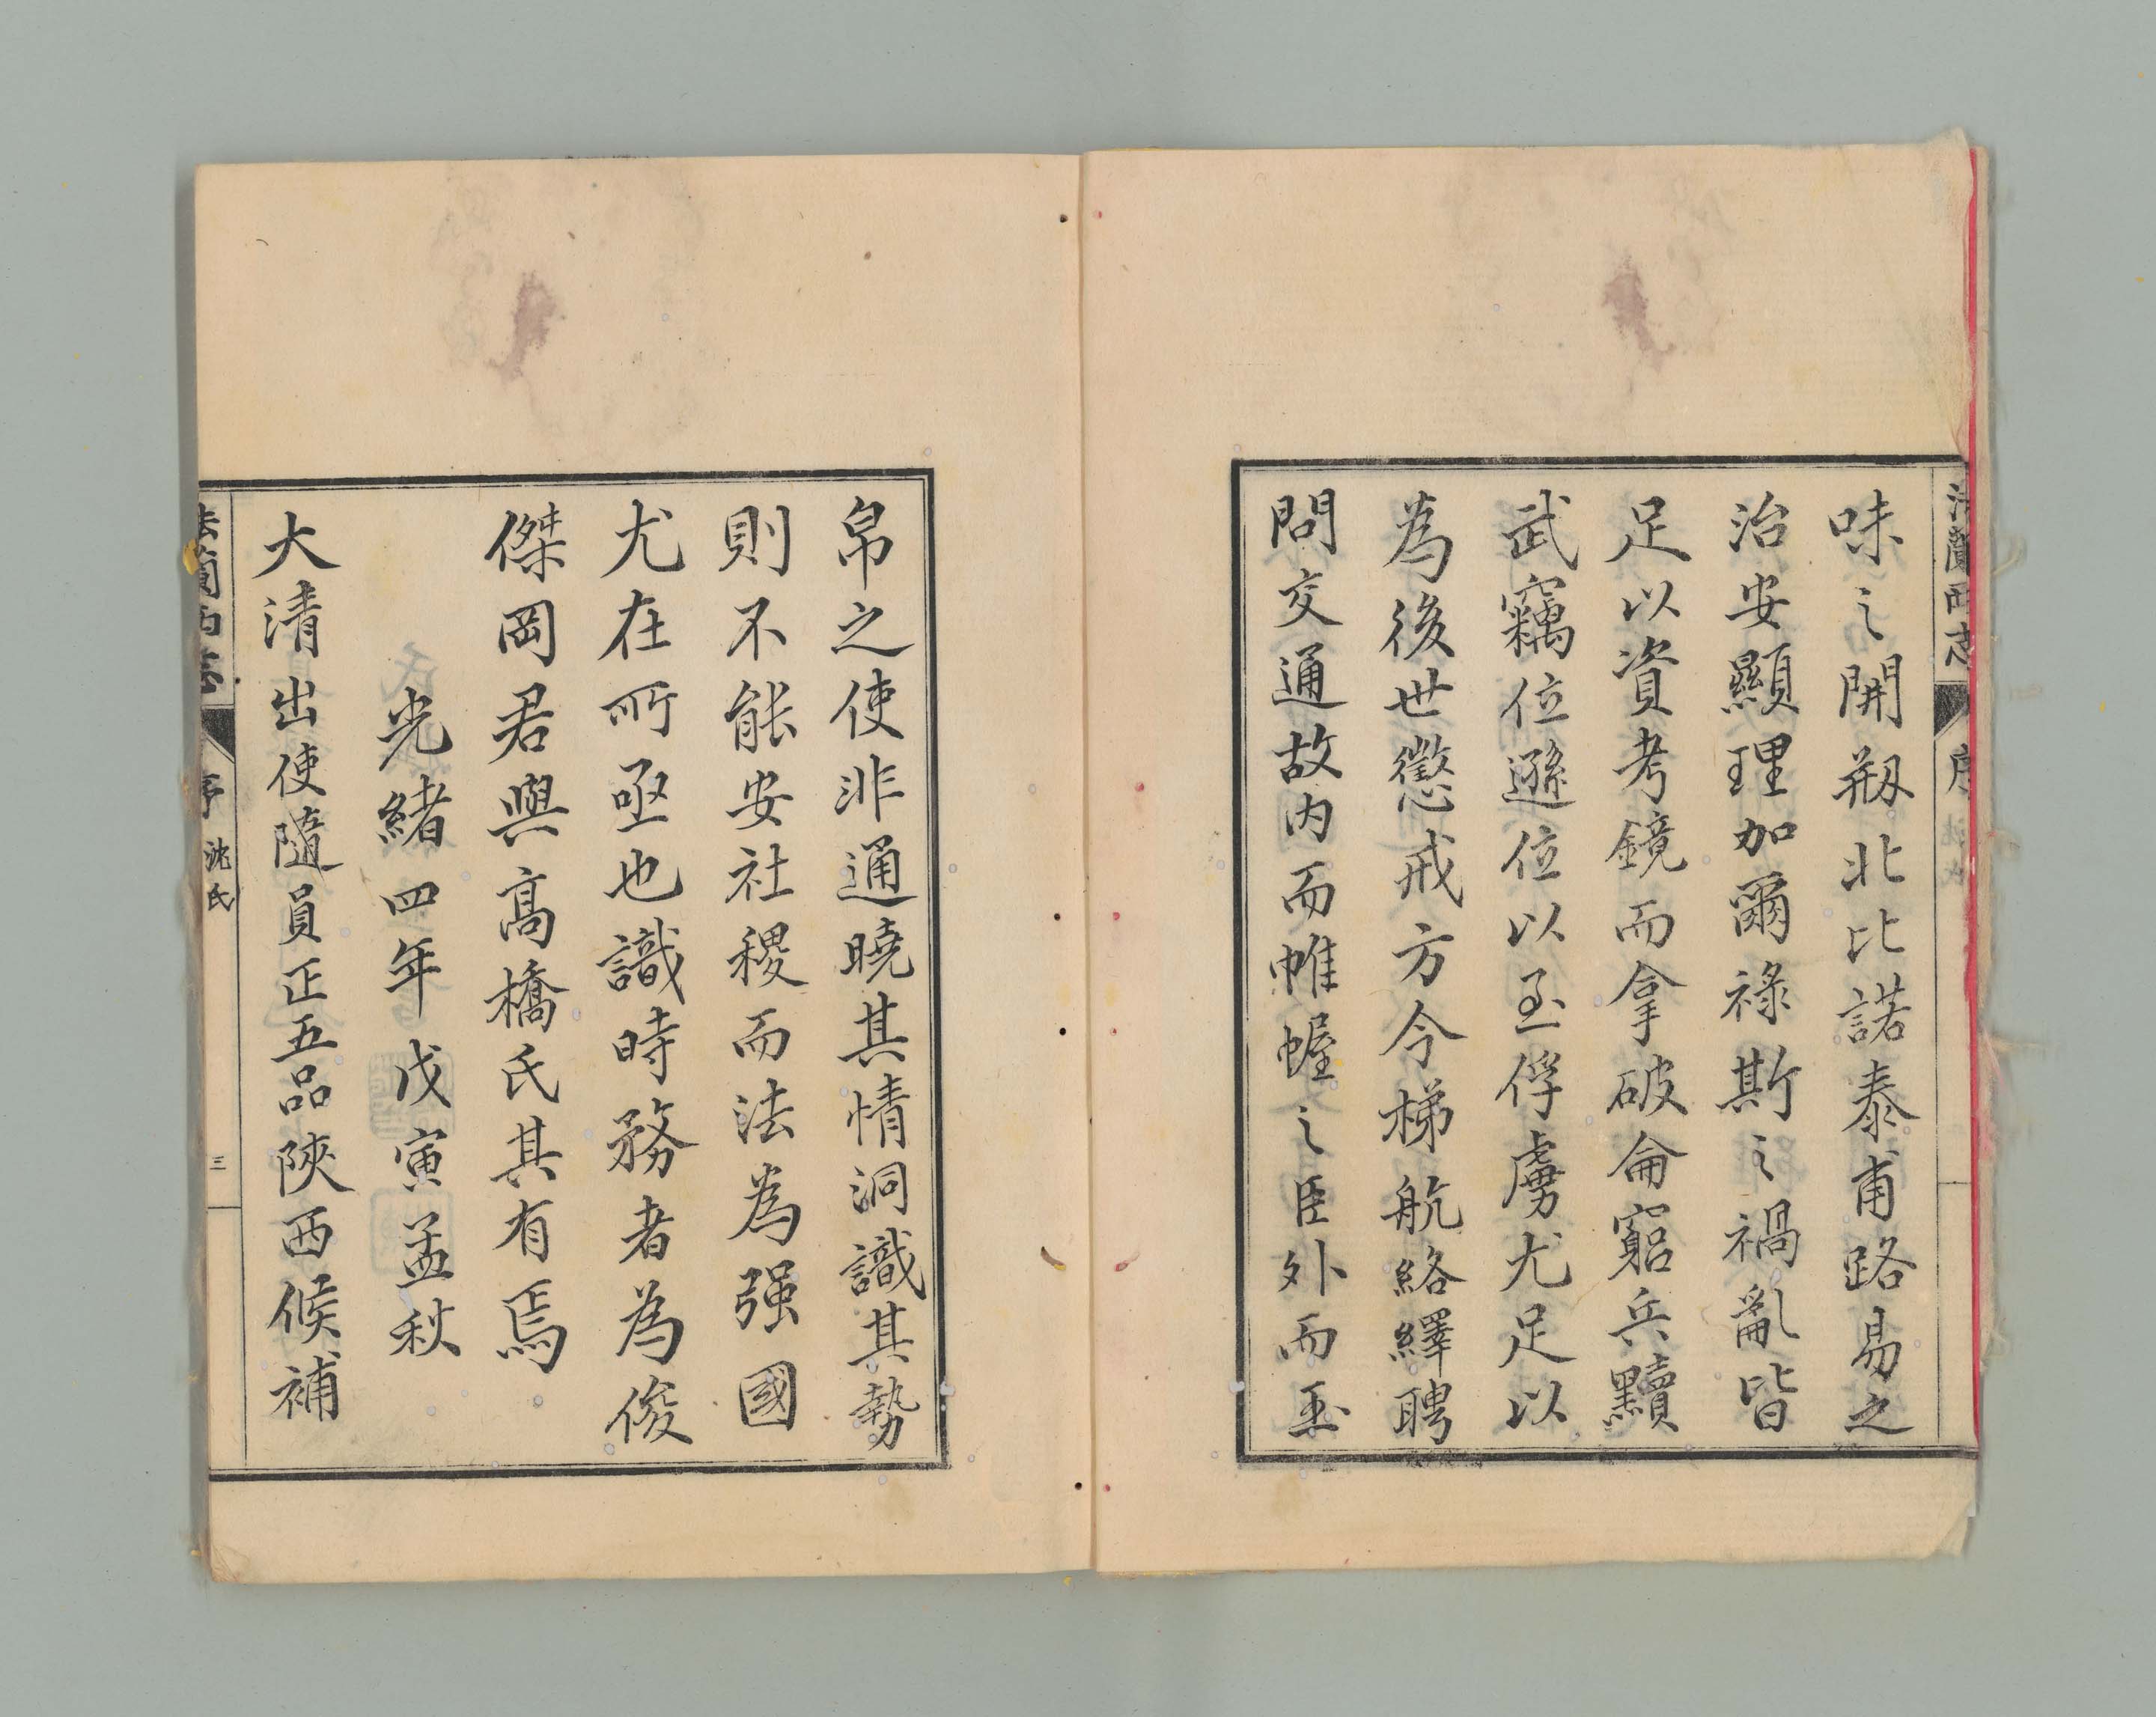 法蘭西志
序
味之開剏北比諾泰甫路易之
治安顯理加爾祿斯之禍亂皆
足以資考鏡而拿破侖窮兵黷
武竊位遜位以至俘虜尤足以
為後世懲戒方今梯航絡繹聘
問交通故內而帷幄之臣外而玉
帛之使非通曉其情洞識其勢
則不能安社稷而法為强國
尤在所亟也識時務者為俊
傑岡君與高橋氏其有焉
光緒四年戊寅孟秋
大清出使隨員正五品陝西候補
法蘭西志
序 沈氏
三